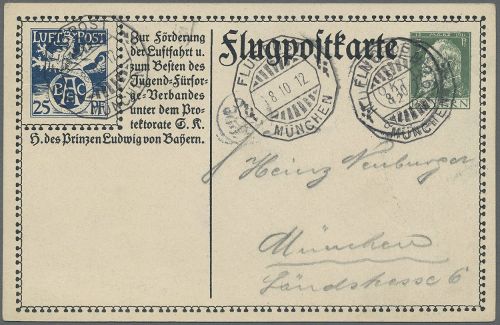 LUFT POST
BAC
25 PF.
Zur Förderung
der Luftfahrt u.
zum Besten des
Jugend-Fürsor-
ge-Verbandes
unter dem Pro-
tektorate S. K.
H. des Prinzen Ludwig von Bayern.
Flugpostkarte
8.10 12
MÜNCHEN
MÜNCHEN
Heinz Neuburger
München
Ländstrasse 6